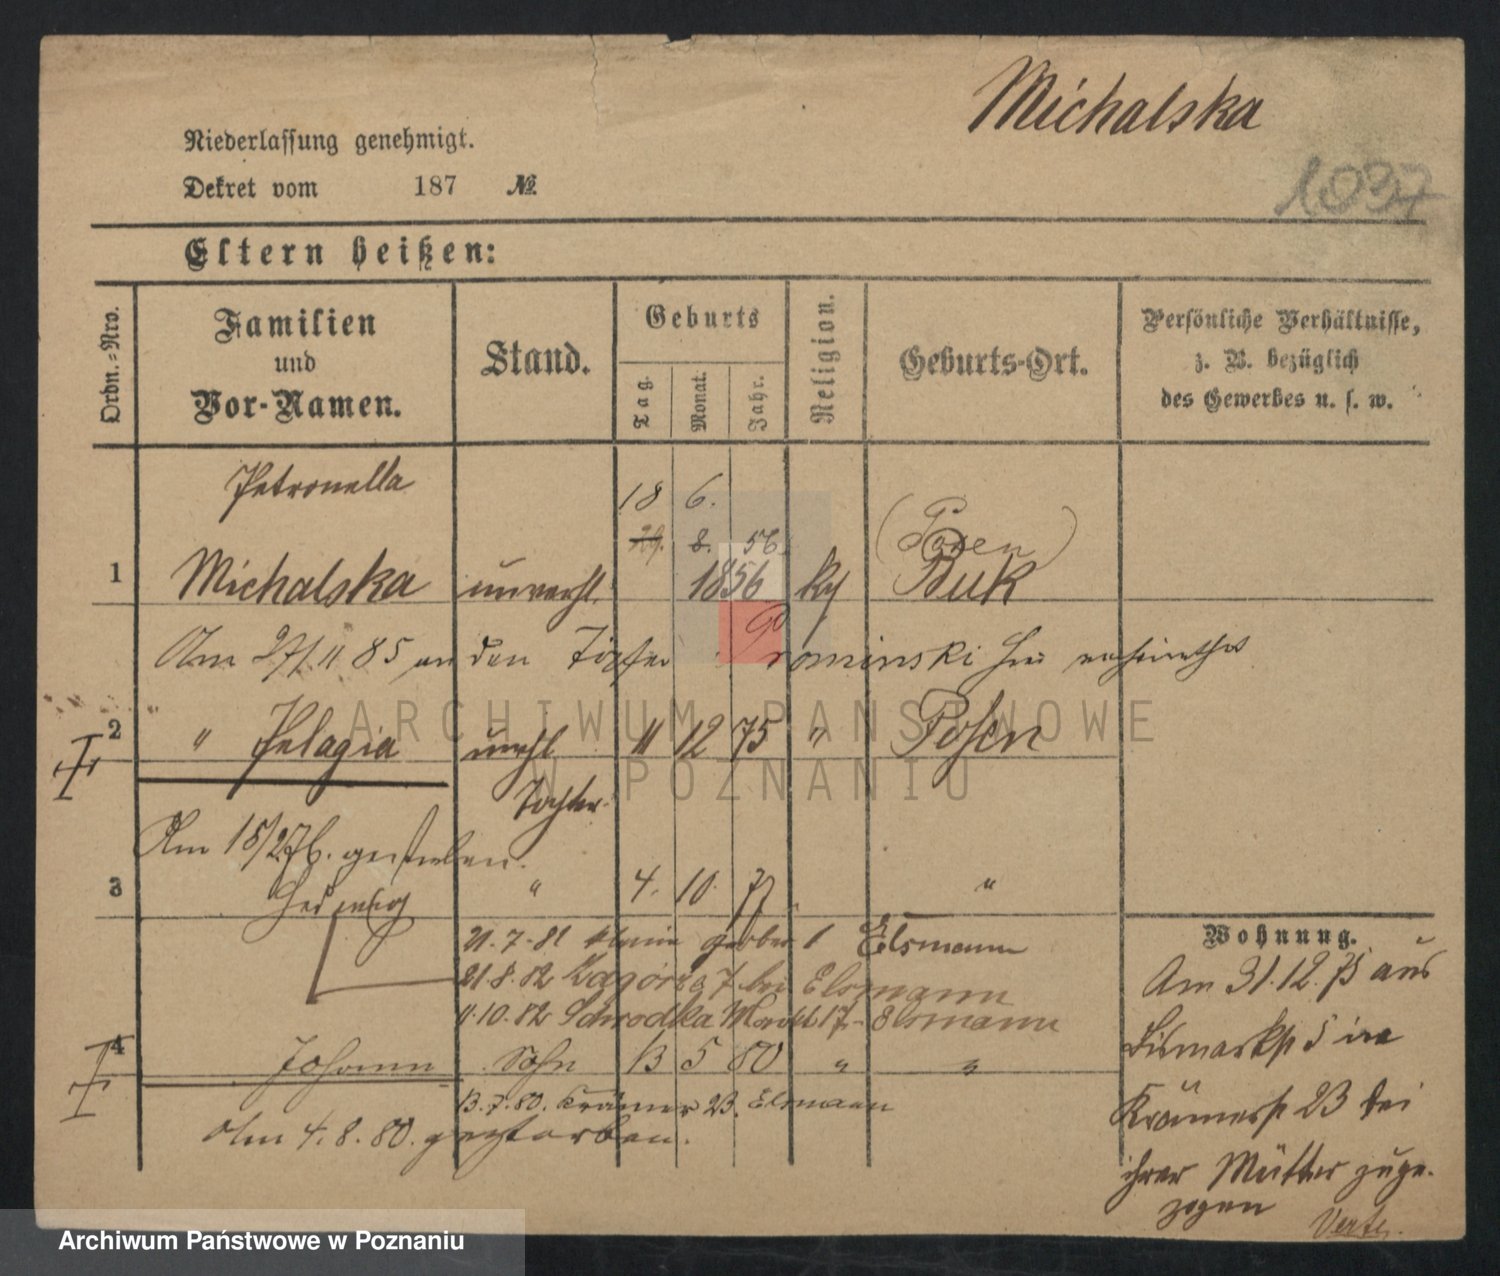 Michalska
1037
Niederlassung genehmigt.
Dekret vom 187 №
Eltern heißen:
Ordn.=Nro.
Familien und Vor-Namen.
Stand.
Geburts
Tag.
Monat.
Jahr.
Religion.
Geburts-Ort.
Persönliche Verhältnisse,
z. B. bezüglich
des Gewerbes u. s. w.
Petronella
18 6.
29. 8. 56. (Posen)
1 Michalska unverehl. 1856 Buk
Am 27/11 85 an den Töpfer Prominski hier verheirathet
2 " Pelagia unehl 11 12 75 " Posen
Tochter
Am 15/2 76. gestorben.
3 Hedwig " 4. 10. 77 "
21.7.81 gerber 1 Elsmann
21.8.82 Zagórze 7 bei Elsmann
11.10.82 Schrodka Markt 17 - Elsmann
4 Johann Sohn 13 5 80 " "
13.7.80. Krämer 23. Elsmann
Am 4.8.80. gestorben.
Wohnung.
Am 31.12.75 aus
Bismarkst 5 in
Krämerst 23 bei
ihrer Mutter zuge-
zogen
Verte.
ARCHIWUM PAŃSTWOWE
W POZNANIU
Archiwum Państwowe w Poznaniu